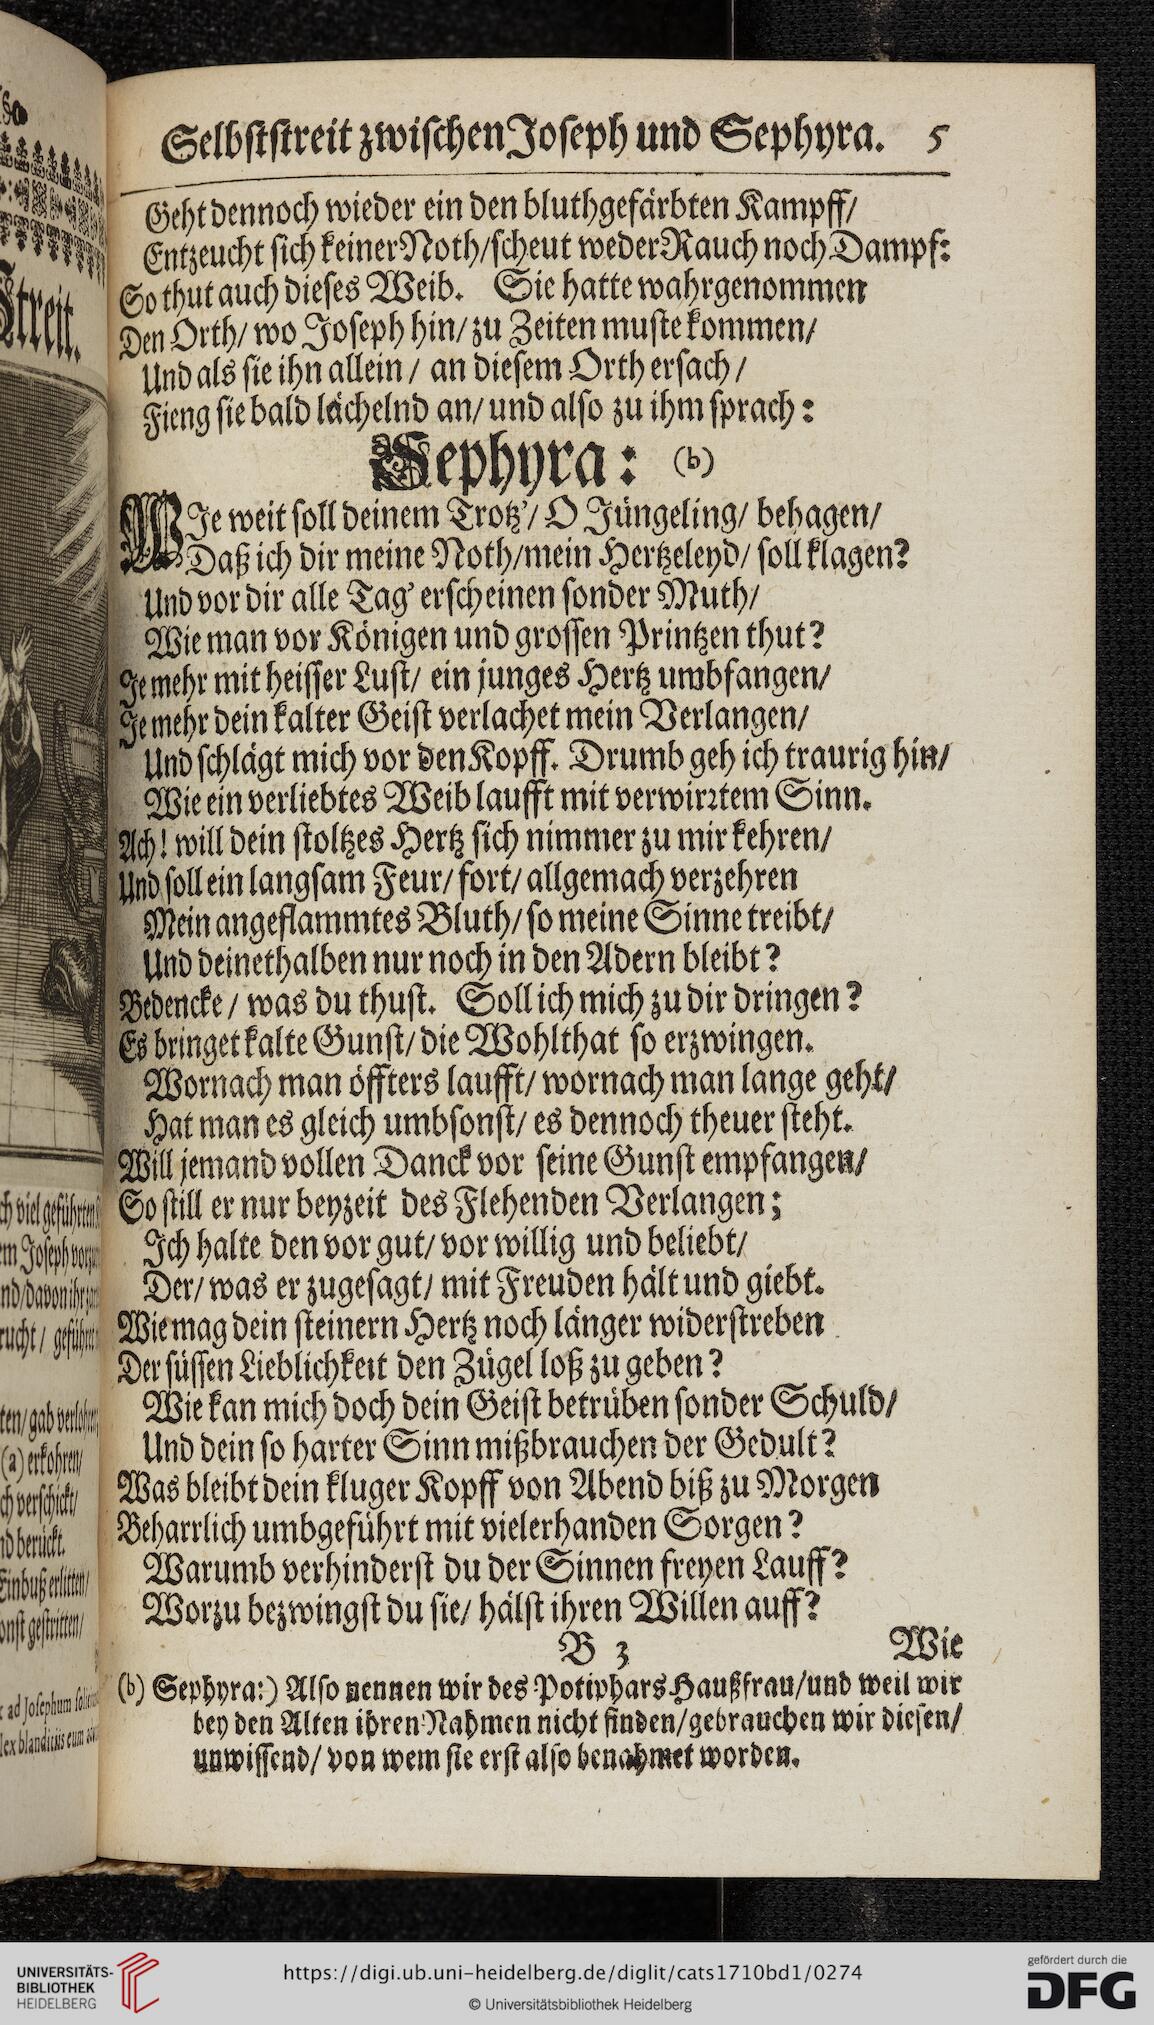 Selbststreit zwischen Joseph und Sephyra. 5
Geht dennoch wieder ein den bluthgefärbten Kampff/
Entzeucht sich keiner Noth/scheut weder Rauch noch Dampf:
So thut auch dieses Weib. Sie hatte wahrgenommen
Den Orth/ wo Joseph hin/ zu Zeiten muste kommen/
Und als sie ihn allein/ an diesem Orth ersach/
Fieng sie bald lächelnd an/ und also zu ihm sprach:
Sephyra: (b)
WJe weit soll deinem Trotz'/ O Jüngeling/ behagen/
Daß ich dir meine Noth/mein Hertzeleyd/ soll klagen?
Und vor dir alle Tag' erscheinen sonder Muth/
Wie man vor Königen und grossen Printzen thut?
Je mehr mit heisser Lust/ ein junges Hertz umbfangen/
Je mehr dein kalter Geist verlachet mein Verlangen/
Und schlägt mich vor den Kopff. Drumb geh ich traurig hin/
Wie ein verliebtes Weib laufft mit verwirrtem Sinn.
Ach! will dein stoltzes Hertz sich nimmer zu mir kehren/
Und soll ein langsam Feur/ fort/ allgemach verzehren
Mein angeflammtes Bluth/ so meine Sinne treibt/
Und deinethalben nur noch in den Adern bleibt?
Bedencke/ was du thust. Soll ich mich zu dir dringen?
Es bringet kalte Gunst/ die Wohlthat so erzwingen.
Wornach man öffters laufft/ wornach man lange geht/
Hat man es gleich umbsonst/ es dennoch theuer steht.
Will jemand vollen Danck vor seine Gunst empfangen/
So still er nur beyzeit des Flehenden Verlangen;
Ich halte den vor gut/ vor willig und beliebt/
Der/ was er zugesagt/ mit Freuden hält und giebt.
Wie mag dein steinern Hertz noch länger widerstreben
Der süssen Lieblichkeit den Zügel loß zu geben?
Wie kan mich doch dein Geist betrüben sonder Schuld/
Und dein so harter Sinn mißbrauchen der Gedult?
Was bleibt dein kluger Kopff von Abend biß zu Morgen
Beharrlich umbgeführt mit vielerhanden Sorgen?
Warumb verhinderst du der Sinnen freyen Lauff?
Worzu bezwingst du sie/ hälst ihren Willen auff?
B 3 Wie
(b) Sephyra:) Also nennen wir des Potiphars Haußfrau/und weil wir
bey den Alten ihren Nahmen nicht finden/gebrauchen wir diesen/
unwissend/ von wem sie erst also benahmet worden.
UNIVERSITÄTS-
BIBLIOTHEK
HEIDELBERG
https://digi.ub.uni-heidelberg.de/diglit/cats1710bd1/0274
© Universitätsbibliothek Heidelberg
gefördert durch die
DFG